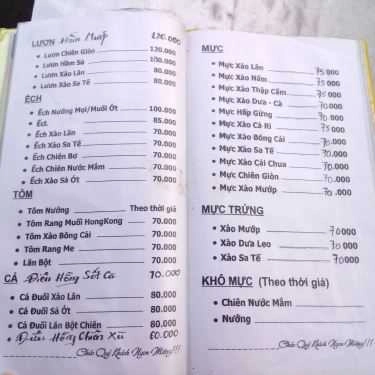 LƯƠN Hầm Mướp 120.000
Lươn Chiên Giòn 120.000
Lươn Hầm Sả 100.000
Lươn Xào Lăn 80.000
Lươn Xào Sa Tế 80.000
ẾCH
Ếch Nướng Mọi/Muối Ớt 100.000
85.000
Ếch Xào Lăn 70.000
Ếch Xào Sa Tế 70.000
Ếch Chiên Bơ 70.000
Ếch Chiên Nước Mắm 70.000
Ếch Xào Sả Ớt 70.000
TÔM
Tôm Nướng Theo thời giá
Tôm Rang Muối HongKong 70.000
Tôm Xào Bông Cải 70.000
Tôm Rang Me 70.000
Lăn Bột 70.000
CÁ Điêu Hồng Sốt Cà 70.000
Cá Đuối Xào Lăn 80.000
Cá Đuối Sả Ớt 80.000
Cá Đuối Lăn Bột Chiên 80.000
Điêu Hồng Chiên Xù 60.000
Chúc Quý Khách Ngon Miệng!!!
MỰC
Mực Xào Lăn 75 000
Mực Xào Nấm 75 000
Mực Xào Thập Cẩm 75 000
Mực Xào Dưa - Cà 70 000
Mực Hấp Gừng 70 000
Mực Xào Cà Ri 75 000
Mực Xào Bông Cải 70 000
Mực Xào Sa Tế 70 000
Mực Xào Cải Chua 70 000
Mực Chiên Giòn 70 000
Mực Xào Mướp 70 .000
MỰC TRỨNG
Xào Mướp 70 000
Xào Dưa Leo 70 000
Xào Sa Tế 70 000
KHÔ MỰC (Theo thời giá)
Chiên Nước Mắm
Nướng
Chúc Quý Khách Ngon Miệng!!!